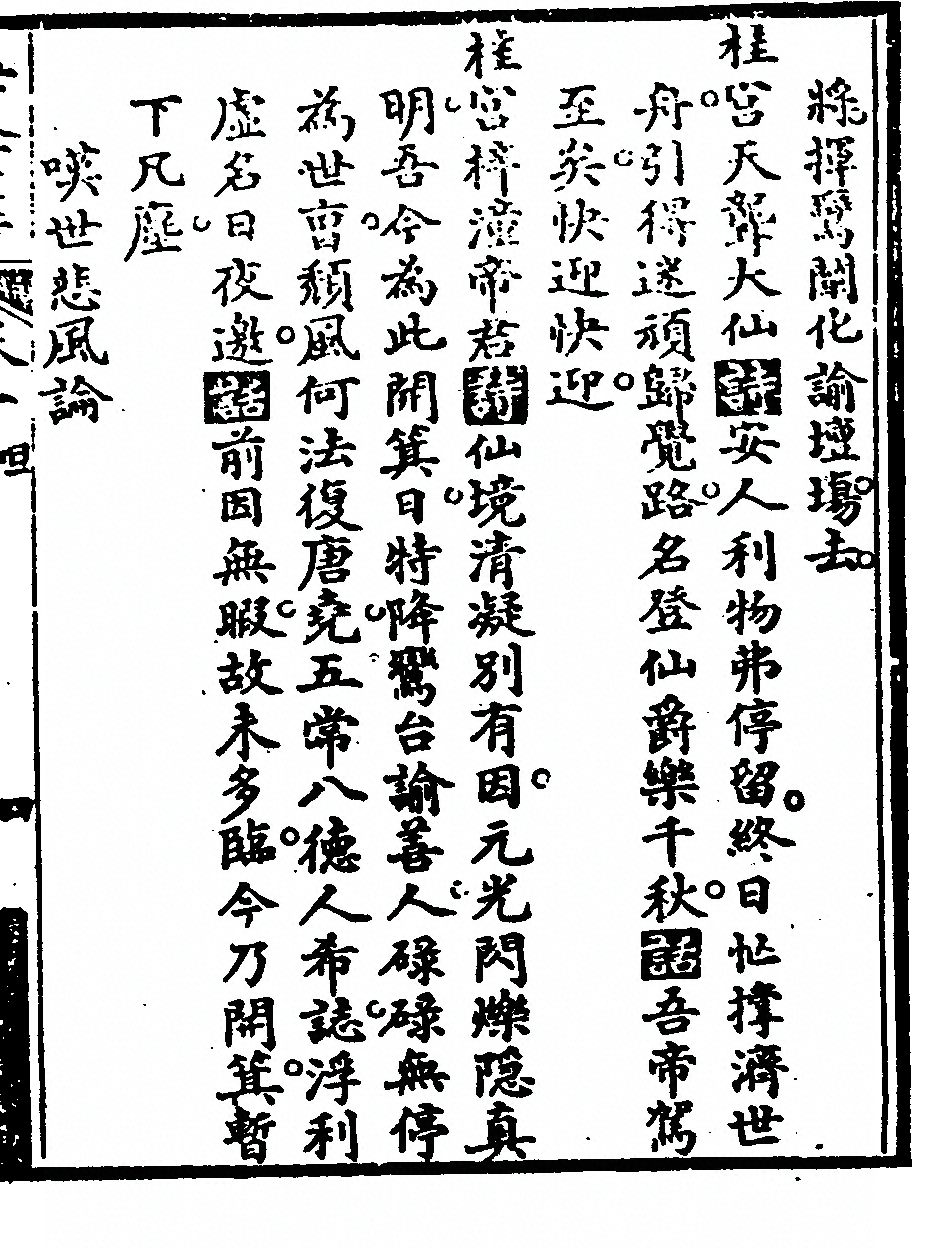 將揮鸞闡化諭壇場去
桂宮天龔大仙詩安人利物弗停留終日忙撑濟世
舟引得迷頑歸覺路名登仙爵樂千秋話吾帝駕
至矣快迎快迎
桂宮梓潼帝君詩仙境清凝別有因元光閃爍隱真
明吾今為此開箕日特降鸞台諭善人碌碌無停
為世曹頹風何法復唐堯五常八德人希誌浮利
虛名日夜邀話前因無暇故未多臨今乃開箕暫
下凡塵
嘆世悲風論